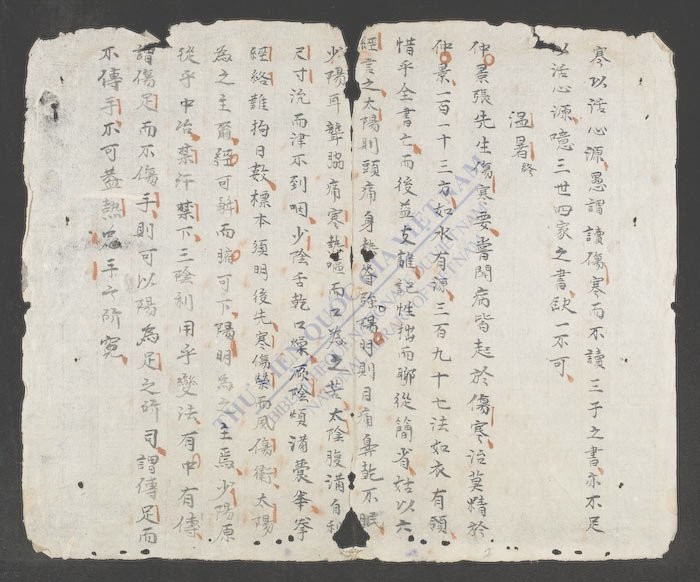 寒以活心源愚謂讀傷寒而不讀三子之書亦不足
以活心源噫三世四家之書欽一不可
溫暑終
仲景張先生傷寒要嘗聞病皆起於傷寒治莫精於
仲景一百一十三方如水有源三百九十七法如衣有領
惜乎全書亡而後益支離 性拙而聊從簡省姑以六
經言之太陽則頭痛身熱脊強陽明則目痛鼻乾不眠
少陽耳聾脇痛寒熱嘔而口為之苦太陰腹滿自利
尺寸沉而津不到咽少陰舌乾口燥厥陰煩滿囊拳
經絡難拘日数標本須明後先寒傷榮而風傷衛太陽
為之主爾經可 而腑可下陽明為之主焉少陽原
從乎中治禁汗禁下三陰利用乎變法有中有傳
謂傷足而不傷手則可以陽為足之所司謂傳足而
不傳手不可盖熱
THƯ VIỆN QUỐC GIA VIỆT NAM
NATIONAL LIBRARY OF VIETNAM